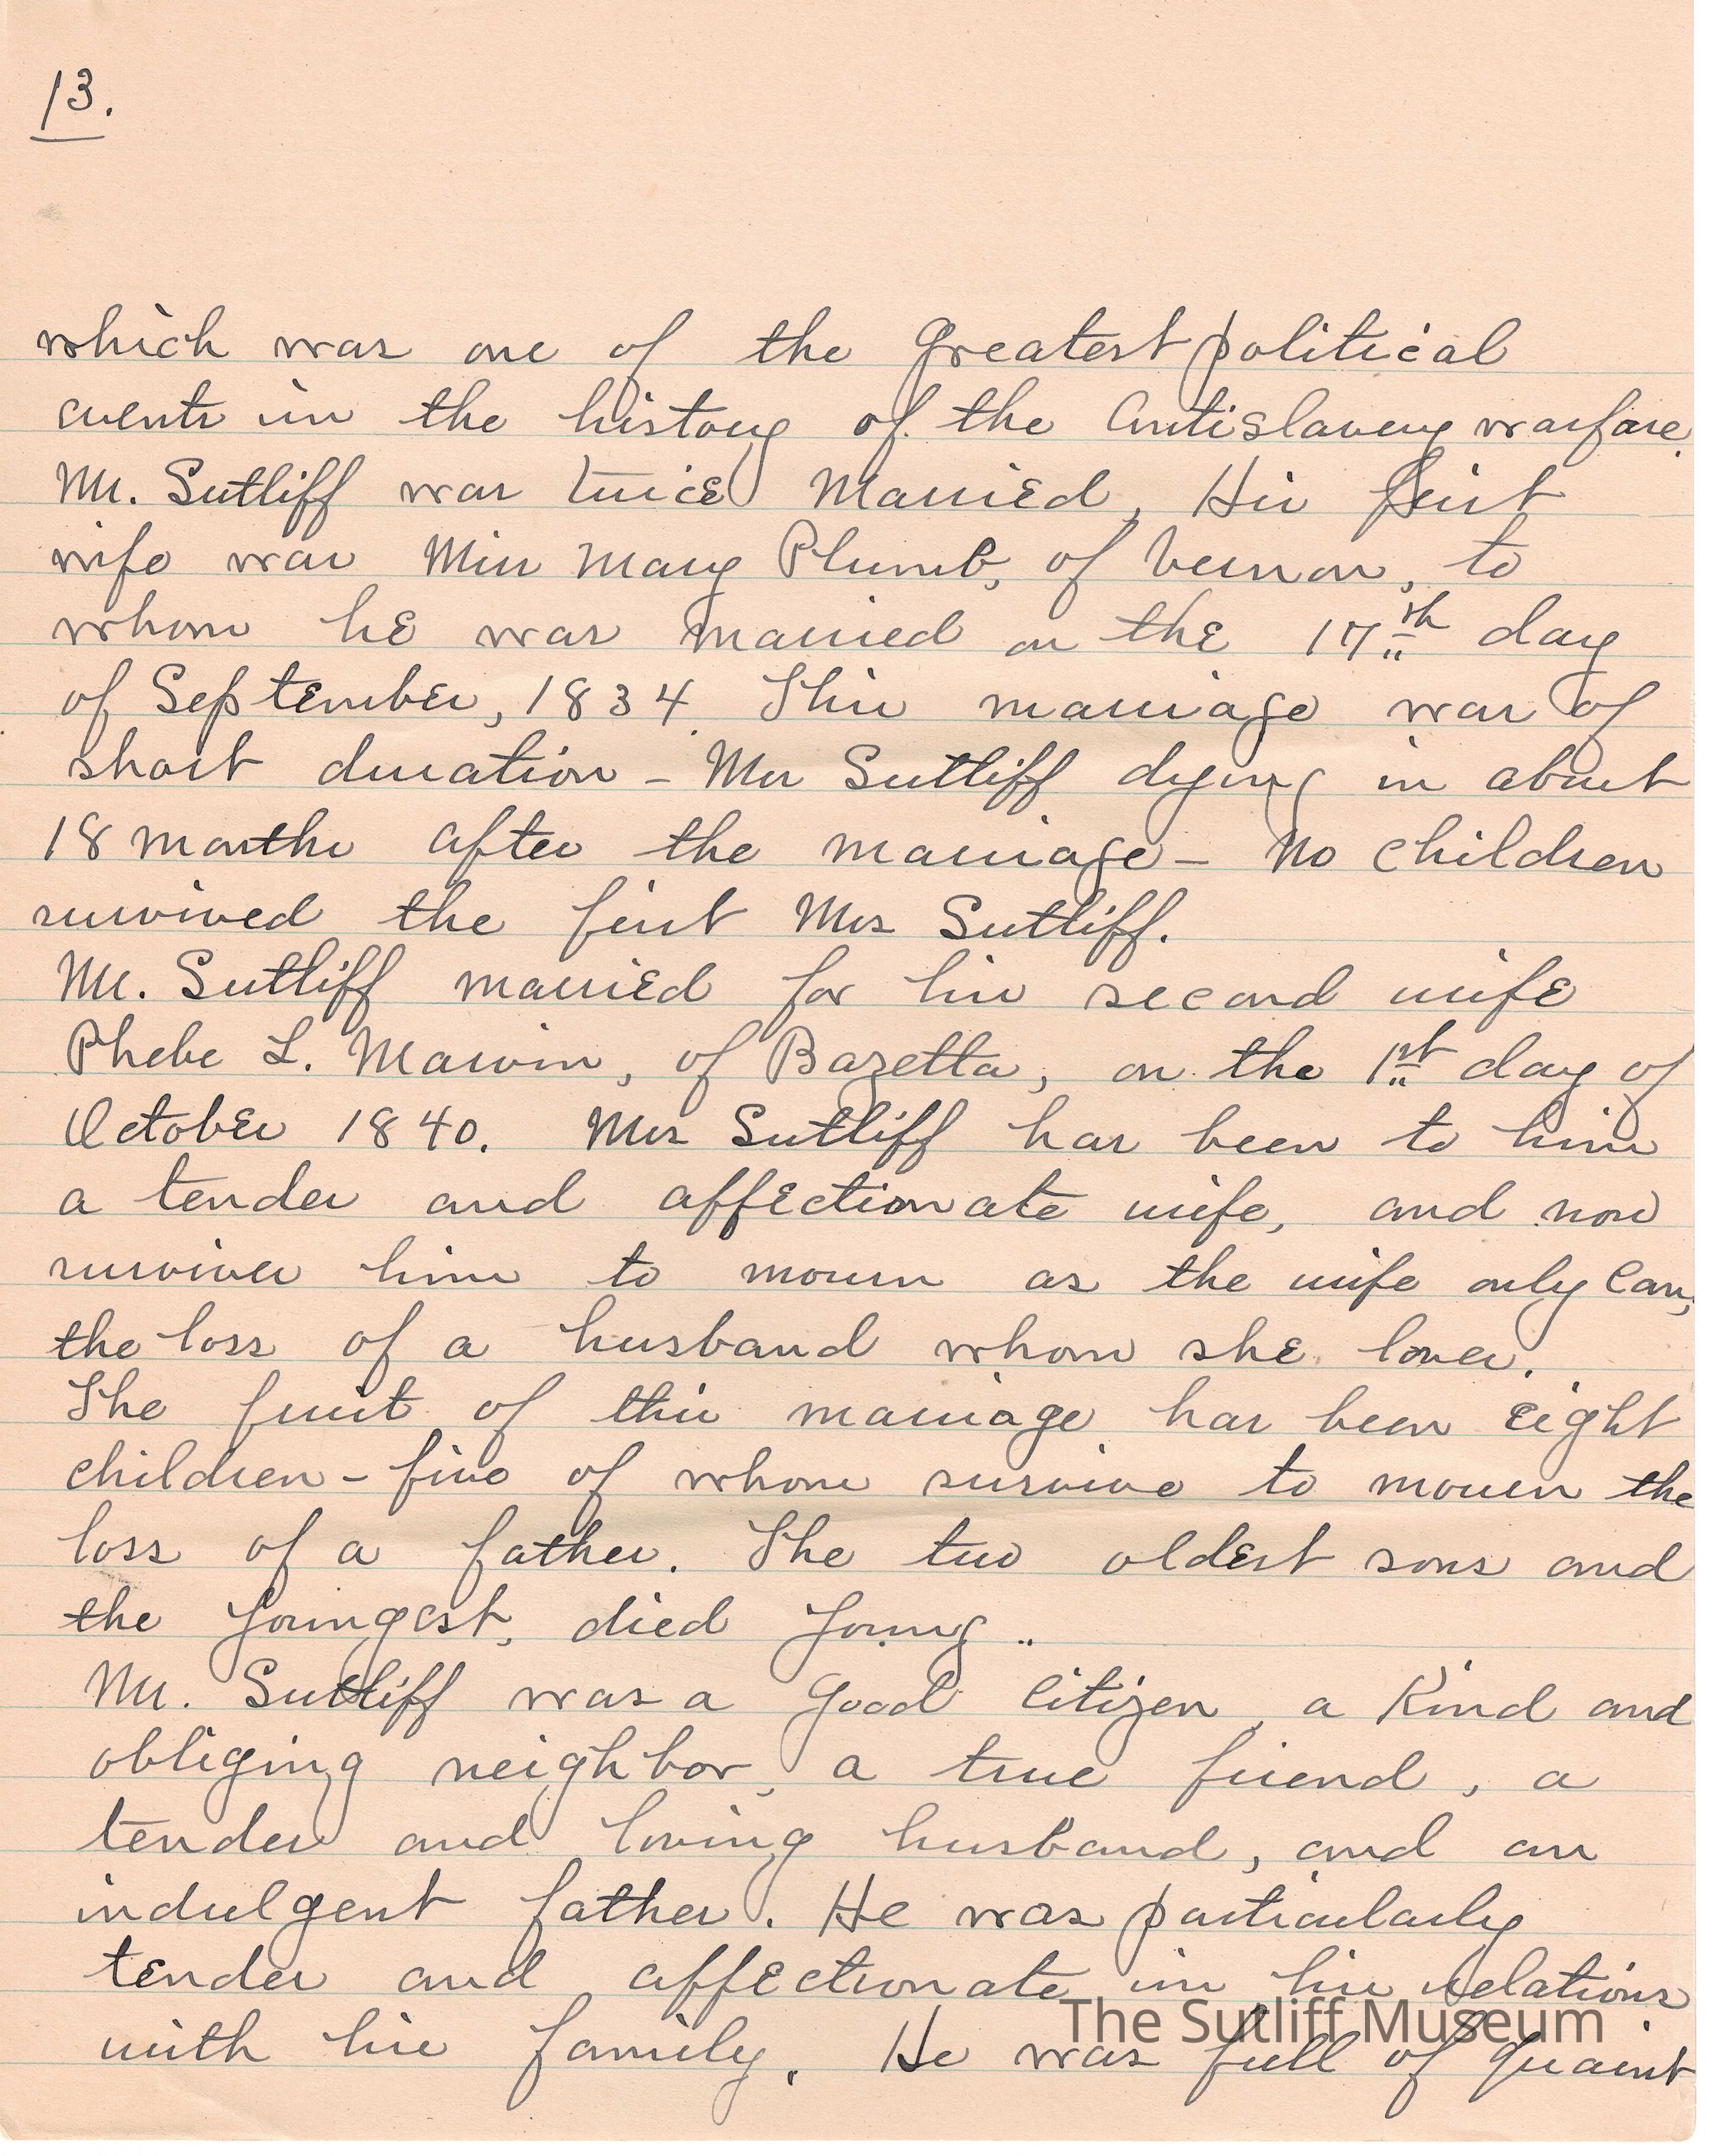 13.
which was one of the greatest political
events in the history of the Antislavery warfare.
Mr. Sutliff was twice Married. His first
wife was Miss Mary Plumb, of Vernon, to
whom he was married on the 17th day
of September, 1834. This marriage was of
short duration - Mrs Sutliff dying in about
18 months after the marriage - No children
survived the first Mrs Sutliff.
Mr. Sutliff married for his second wife
Phebe L. Marvin, of Bazetta, on the 1st day of
October 1840. Mrs Sutliff has been to him
a tender and affectionate wife, and now
survives him to mourn as the wife only can,
the loss of a husband whom she loves.
The fruit of this marriage has been eight
children - five of whom survive to mourn the
loss of a father. The two oldest sons and
the youngest, died young..
Mr. Sutliff was a good citizen, a kind and
obliging neighbor, a true friend, a
tender and loving husband, and an
indulgent father. He was particularly
tender and affectionate in his relations
with his family. He was full of quaint
The Sutliff Museum